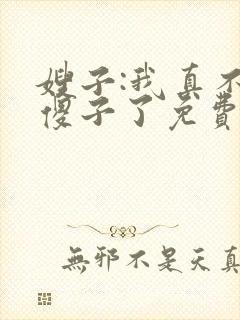 嫂子:我真不
傻子了免费
無邪不是天真